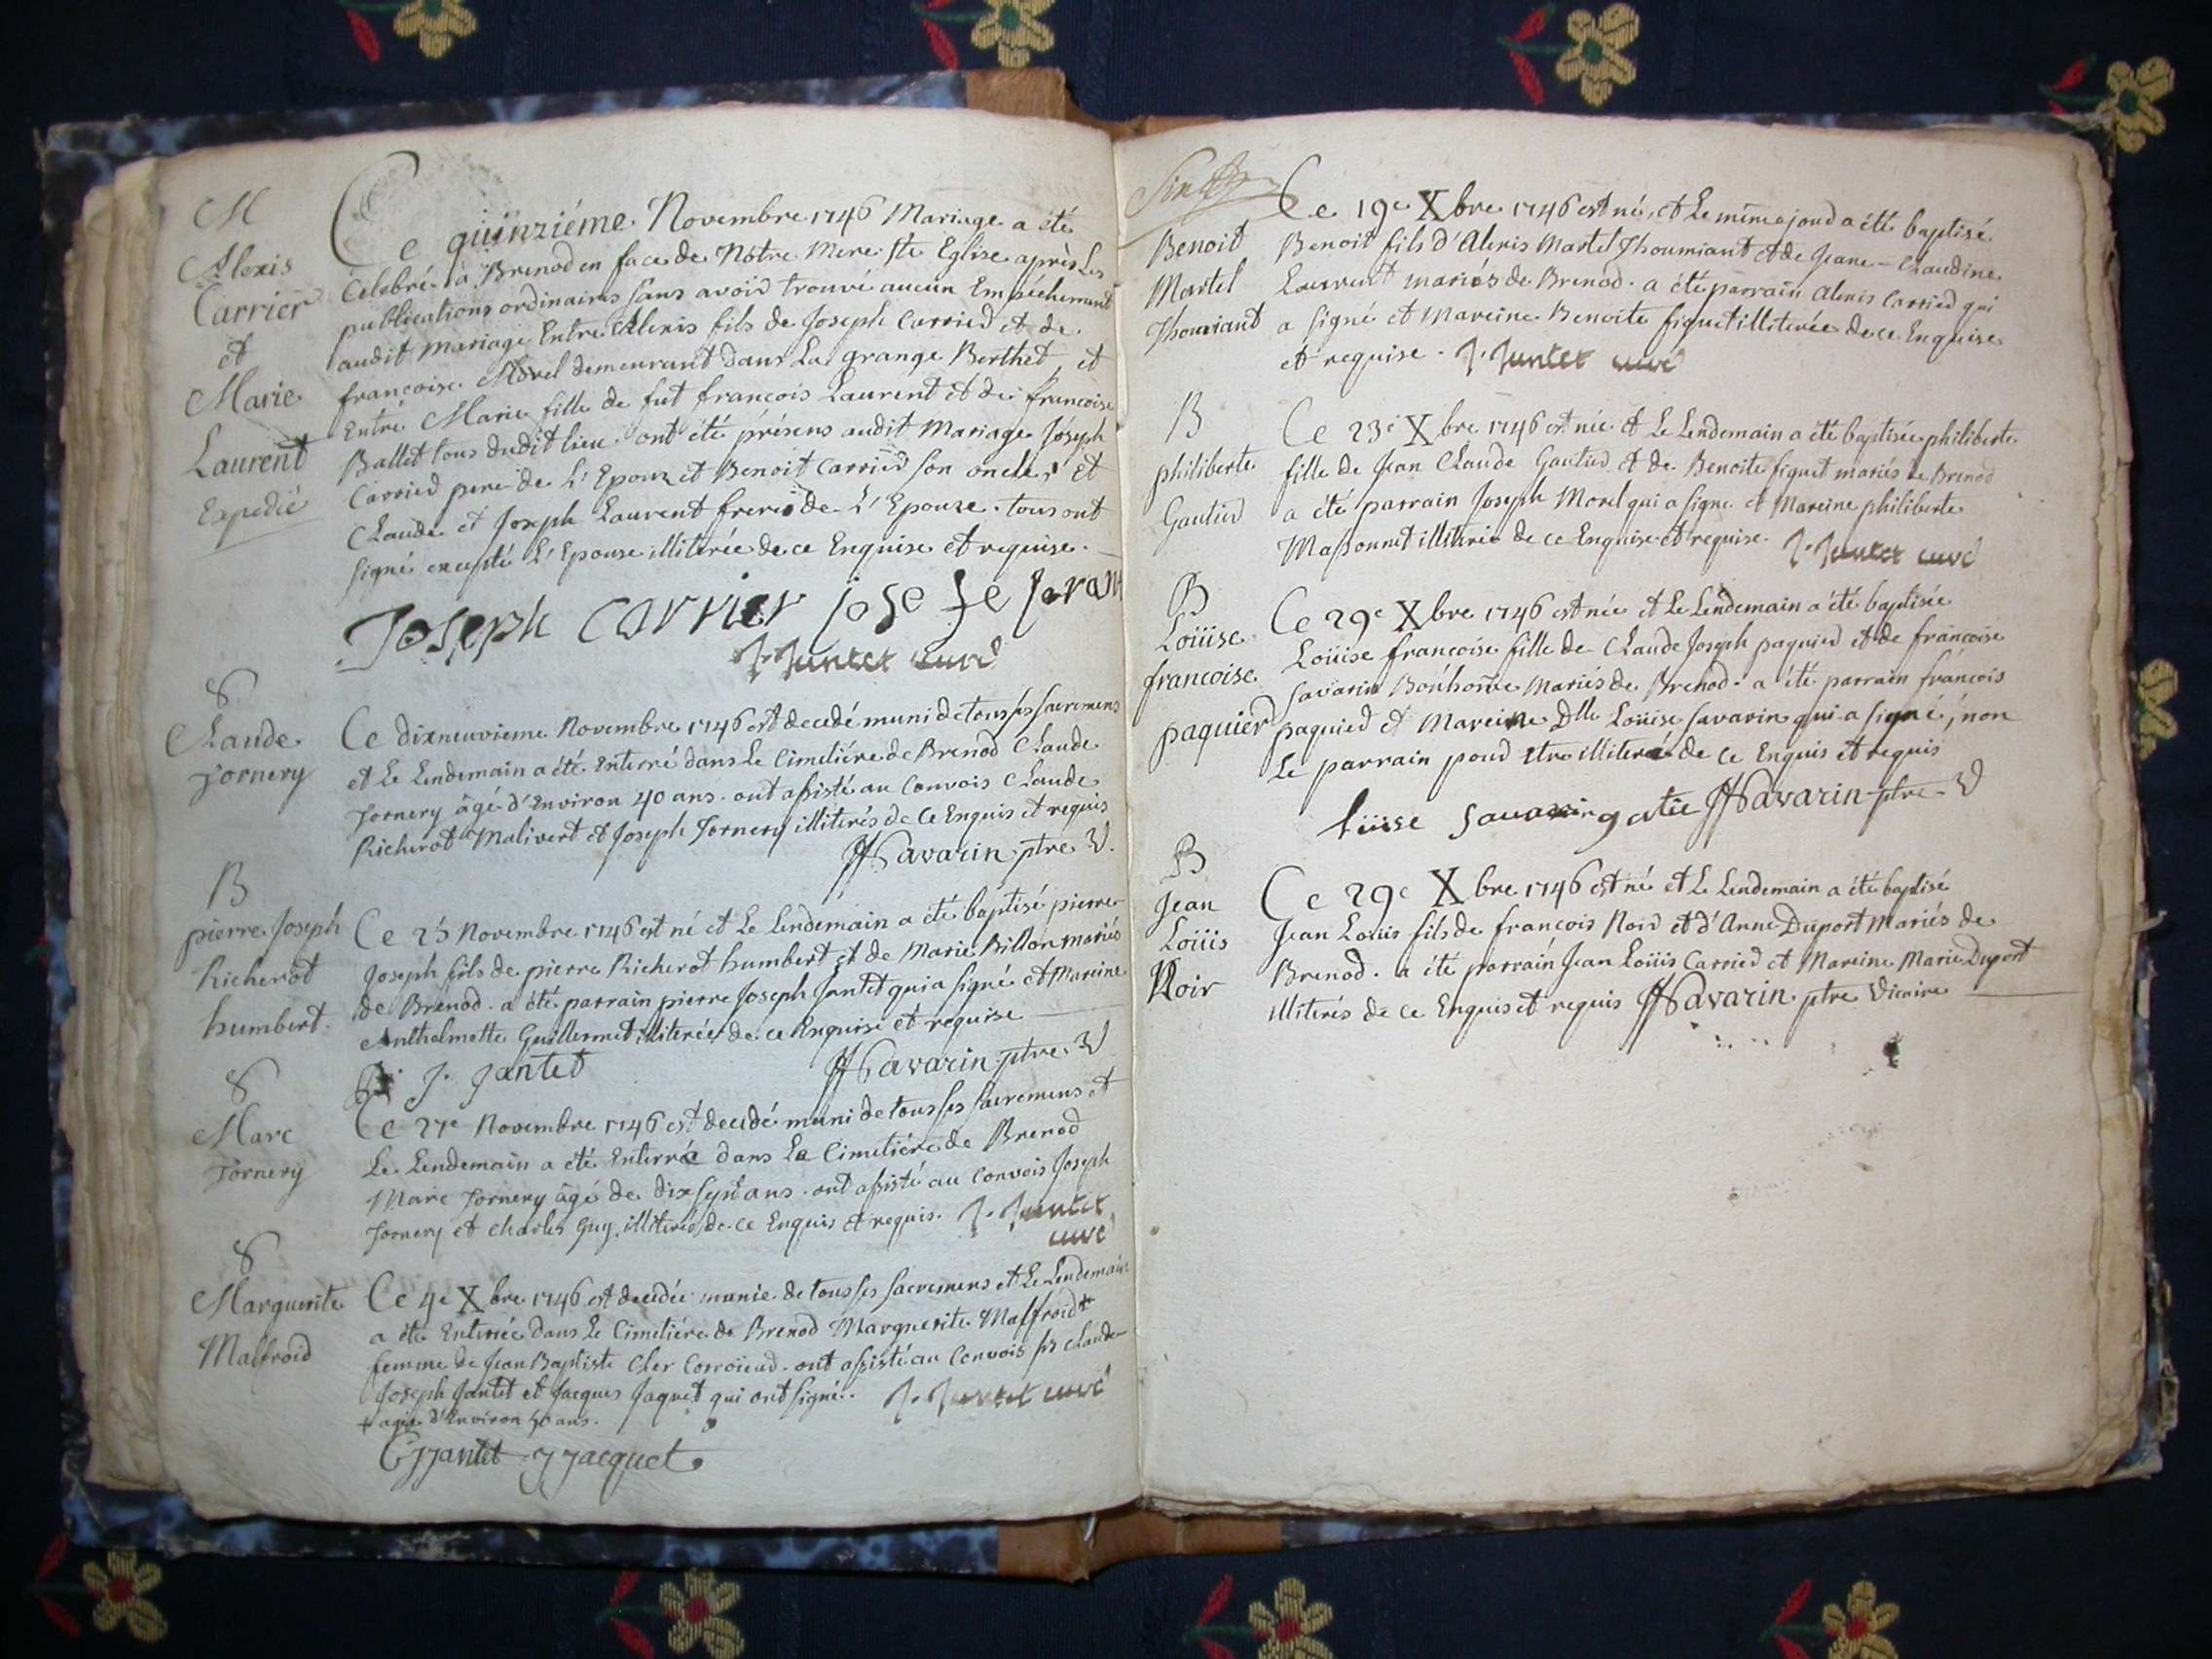 M
Alexis
Carrier
et
Marie
Laurent
Expedié
Ce quinziéme Novembre 1746 Mariage a été
Celebré à Brenod en face de Nôtre Mere Ste Eglise après les
publications ordinaires sans avoir trouvé aucun Empéchement
audit mariage Entre Alexis fils de Joseph Carrier et de
françoise Morel demeurant dans La grange Berthet, et
Entre Marie fille de fut françois Laurent et de françoise
Ballet tous dudit lieu. ont été présens audit Mariage Joseph
Carrier pere de L'Epoux et Benoit Carrier son oncle, Et
Claude et Joseph Laurent freres de L'Epouze. tous ont
signé excepté L'Epouse illiterée de ce Enquise et requise.
Joseph carrier jose fe loran
J. Jantet curé
S
Claude
Jornery
Ce dixneuvieme Novembre 1746 est decedé muni de tous ses sacremens
et Le Lendemain a été Enterré dans Le Cimetiére de Brenod Claude
Jornery âgé d'Environ 40 ans. ont assisté au Convois Claude
Richerot Malivert et Joseph Jornery illiterés de ce Enquis et requis
Savarin ptre V.
B
pierre Joseph
Richerot
humbert.
Ce 25 Novembre 1746 est né et Le Lendemain a été baptisé pierre
Joseph fils de pierre Richerot humbert et de Marie Billon mariés
de Brenod. a été parrain pierre Joseph Jantet qui a signé et Mareine
Anthalmette Guillermet illiterée de ce Enquise et requise
J. Jantet Savarin ptre V
S
Marc
Jornery
Ce 27e Novembre 1746 est decedé muni de tous ses sacremens et
Le Lendemain a été Enterré dans Le Cimetiére de Brenod
Marc Jornery âgé de dix sept ans. ont assisté au Convois Joseph
Jornery et Charles Guy, illiterés de ce Enquis et requis. J. Jantet
curé
S
Marguerite
Maffroid
Ce 4e Xbre 1746 est decedée munie de tous ses sacremens et Le Lendemain
a été Enterrée dans Le Cimetiére de Brenod Marguerite Maffroid+
femme de Jean Baptiste Cler Corroieur. ont assisté au Convois Srs Claude
Joseph Jantet et Jacques Jaquet qui ont signé. J. Jantet curé
+ agée d'Environ 50 ans.
CJ Jantet J Jacquet
Benoit
Martel
Thoumiant
Ce 19e Xbre 1746 est né, et Le même jour a été baptisé
Benoit fils d'Alexis Martel Thoumiant et de Jeane-Claudine
Laurent mariés de Brenod. a été parrain Alexis Carrier qui
a signé et Mareine Benoite figuet illiterée de ce Enquise
et requise. J. Jantet curé
B
philiberte
Gautier
Ce 23e Xbre 1746 est née et Le Lendemain a été baptisée philiberte
fille de Jean Claude Gautier et de Benoite figuet mariés de Brenod
a été parrain Joseph Morel qui a signé et Mareine philiberte
Massonnet illiterée de ce Enquise et requise. J. Jantet curé
B
Loüise
francoise
paquier
Ce 29e Xbre 1746 est née et Le Lendemain a été baptisée
Loüise francoise fille de Claude Joseph paquier et de francoise
Savarin Bonhome Mariés de Brenod. a été parrain francois
paquier et Mareine Dlle Loüise Savarin qui a signé, non
Le parrain pour etre illiteré de ce Enquis et requis
loüise Savarin Savarin ptre V
B
Jean
Loüis
Noir
Ce 29e Xbre 1746 est né et Le Lendemain a été baptisé
Jean Loüis fils de francois Noir et d'Anne Duport Mariés de
Brenod. a été parrain Jean Loüis Carrier et Mareine Marie Duport
illiterés de ce Enquis et requis Savarin ptre Vicaire